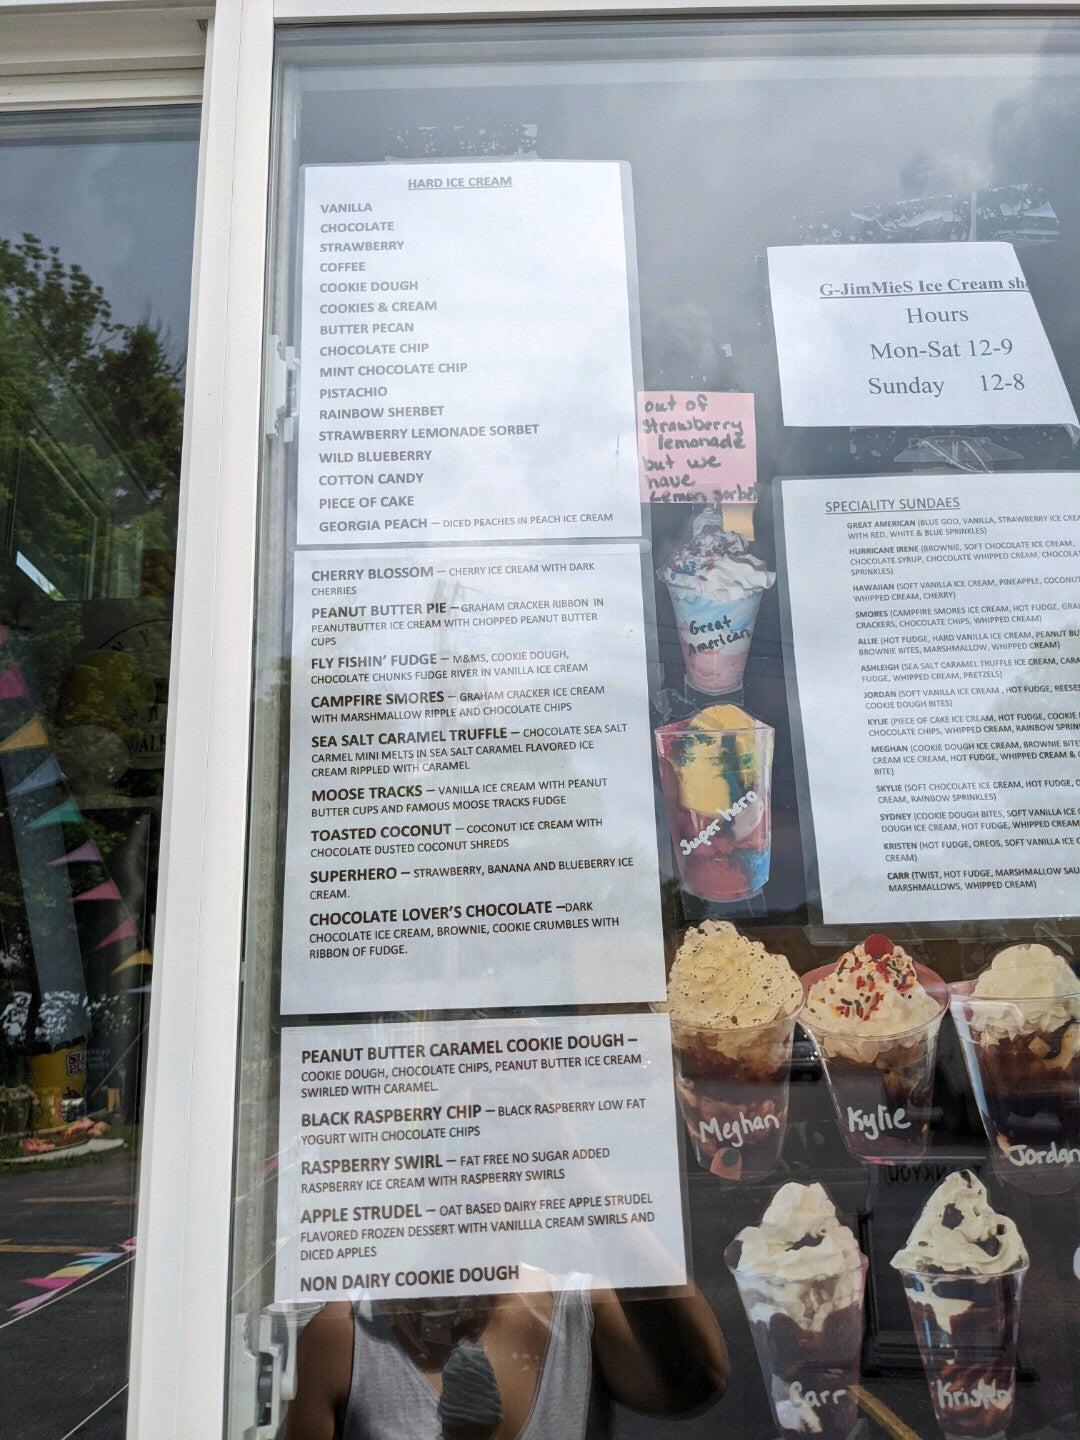 HARD ICE CREAM
VANILLA
CHOCOLATE
STRAWBERRY
COFFEE
COOKIE DOUGH
COOKIES & CREAM
BUTTER PECAN
CHOCOLATE CHIP
MINT CHOCOLATE CHIP
PISTACHIO
RAINBOW SHERBET
STRAWBERRY LEMONADE SORBET
WILD BLUEBERRY
COTTON CANDY
PIECE OF CAKE
GEORGIA PEACH – DICED PEACHES IN PEACH ICE CREAM
CHERRY BLOSSOM – CHERRY ICE CREAM WITH DARK
CHERRIES
PEANUT BUTTER PIE – GRAHAM CRACKER RIBBON IN
PEANUTBUTTER ICE CREAM WITH CHOPPED PEANUT BUTTER
CUPS
FLY FISHIN' FUDGE – M&MS, COOKIE DOUGH,
CHOCOLATE CHUNKS FUDGE RIVER IN VANILLA ICE CREAM
CAMPFIRE SMORES – GRAHAM CRACKER ICE CREAM
WITH MARSHMALLOW RIPPLE AND CHOCOLATE CHIPS
SEA SALT CARAMEL TRUFFLE – CHOCOLATE SEA SALT
CARMEL MINI MELTS IN SEA SALT CARAMEL FLAVORED ICE
CREAM RIPPLED WITH CARAMEL
MOOSE TRACKS – VANILLA ICE CREAM WITH PEANUT
BUTTER CUPS AND FAMOUS MOOSE TRACKS FUDGE
TOASTED COCONUT – COCONUT ICE CREAM WITH
CHOCOLATE DUSTED COCONUT SHREDS
SUPERHERO – STRAWBERRY, BANANA AND BLUEBERRY ICE
CREAM.
CHOCOLATE LOVER'S CHOCOLATE –DARK
CHOCOLATE ICE CREAM, BROWNIE, COOKIE CRUMBLES WITH
RIBBON OF FUDGE.
PEANUT BUTTER CARAMEL COOKIE DOUGH –
COOKIE DOUGH, CHOCOLATE CHIPS, PEANUT BUTTER ICE CREAM
SWIRLED WITH CARAMEL.
BLACK RASPBERRY CHIP – BLACK RASPBERRY LOW FAT
YOGURT WITH CHOCOLATE CHIPS
RASPBERRY SWIRL – FAT FREE NO SUGAR ADDED
RASPBERRY ICE CREAM WITH RASPBERRY SWIRLS
APPLE STRUDEL – OAT BASED DAIRY FREE APPLE STRUDEL
FLAVORED FROZEN DESSERT WITH VANILLLA CREAM SWIRLS AND
DICED APPLES
NON DAIRY COOKIE DOUGH
out of
strawberry
lemonade
but we
have
Lemon Sorbet
G-JimMieS Ice Cream sh
Hours
Mon-Sat 12-9
Sunday 12-8
SPECIALITY SUNDAES
GREAT AMERICAN (BLUE GOO, VANILLA, STRAWBERRY ICE CREA
WITH RED, WHITE & BLUE SPRINKLES)
HURRICANE IRENE (BROWNIE, SOFT CHOCOLATE ICE CREAM,
CHOCOLATE SYRUP, CHOCOLATE WHIPPED CREAM, CHOCOLAT
SPRINKLES)
HAWAIIAN (SOFT VANILLA ICE CREAM, PINEAPPLE, COCONUT
WHIPPED CREAM, CHERRY)
SMORES (CAMPFIRE SMORES ICE CREAM, HOT FUDGE, GRA
CRACKERS, CHOCOLATE CHIPS, WHIPPED CREAM)
ALLIE (HOT FUDGE, HARD VANILLA ICE CREAM, PEANUT BU
BROWNIE BITES, MARSHMALLOW, WHIPPED CREAM)
ASHLEIGH (SEA SALT CARAMEL TRUFFLE ICE CREAM, CARA
FUDGE, WHIPPED CREAM, PRETZELS)
JORDAN (SOFT VANILLA ICE CREAM , HOT FUDGE, REESES
COOKIE DOUGH BITES)
KYLIE (PIECE OF CAKE ICE CREAM, HOT FUDGE, COOKIE
CHOCOLATE CHIPS, WHIPPED CREAM, RAINBOW SPRIN
MEGHAN (COOKIE DOUGH ICE CREAM, BROWNIE BITE
CREAM ICE CREAM, HOT FUDGE, WHIPPED CREAM &
BITE)
SKYLIE (SOFT CHOCOLATE ICE CREAM, HOT FUDGE, O
CREAM, RAINBOW SPRINKLES)
SYDNEY (COOKIE DOUGH BITES, SOFT VANILLA ICE
DOUGH ICE CREAM, HOT FUDGE, WHIPPED CREAM
KRISTEN (HOT FUDGE, OREOS, SOFT VANILLA ICE
CREAM)
CARR (TWIST, HOT FUDGE, MARSHMALLOW SAU
MARSHMALLOWS, WHIPPED CREAM)
Great
American
Superhero
Meghan
Kylie
Jordan
Carr
Kristen